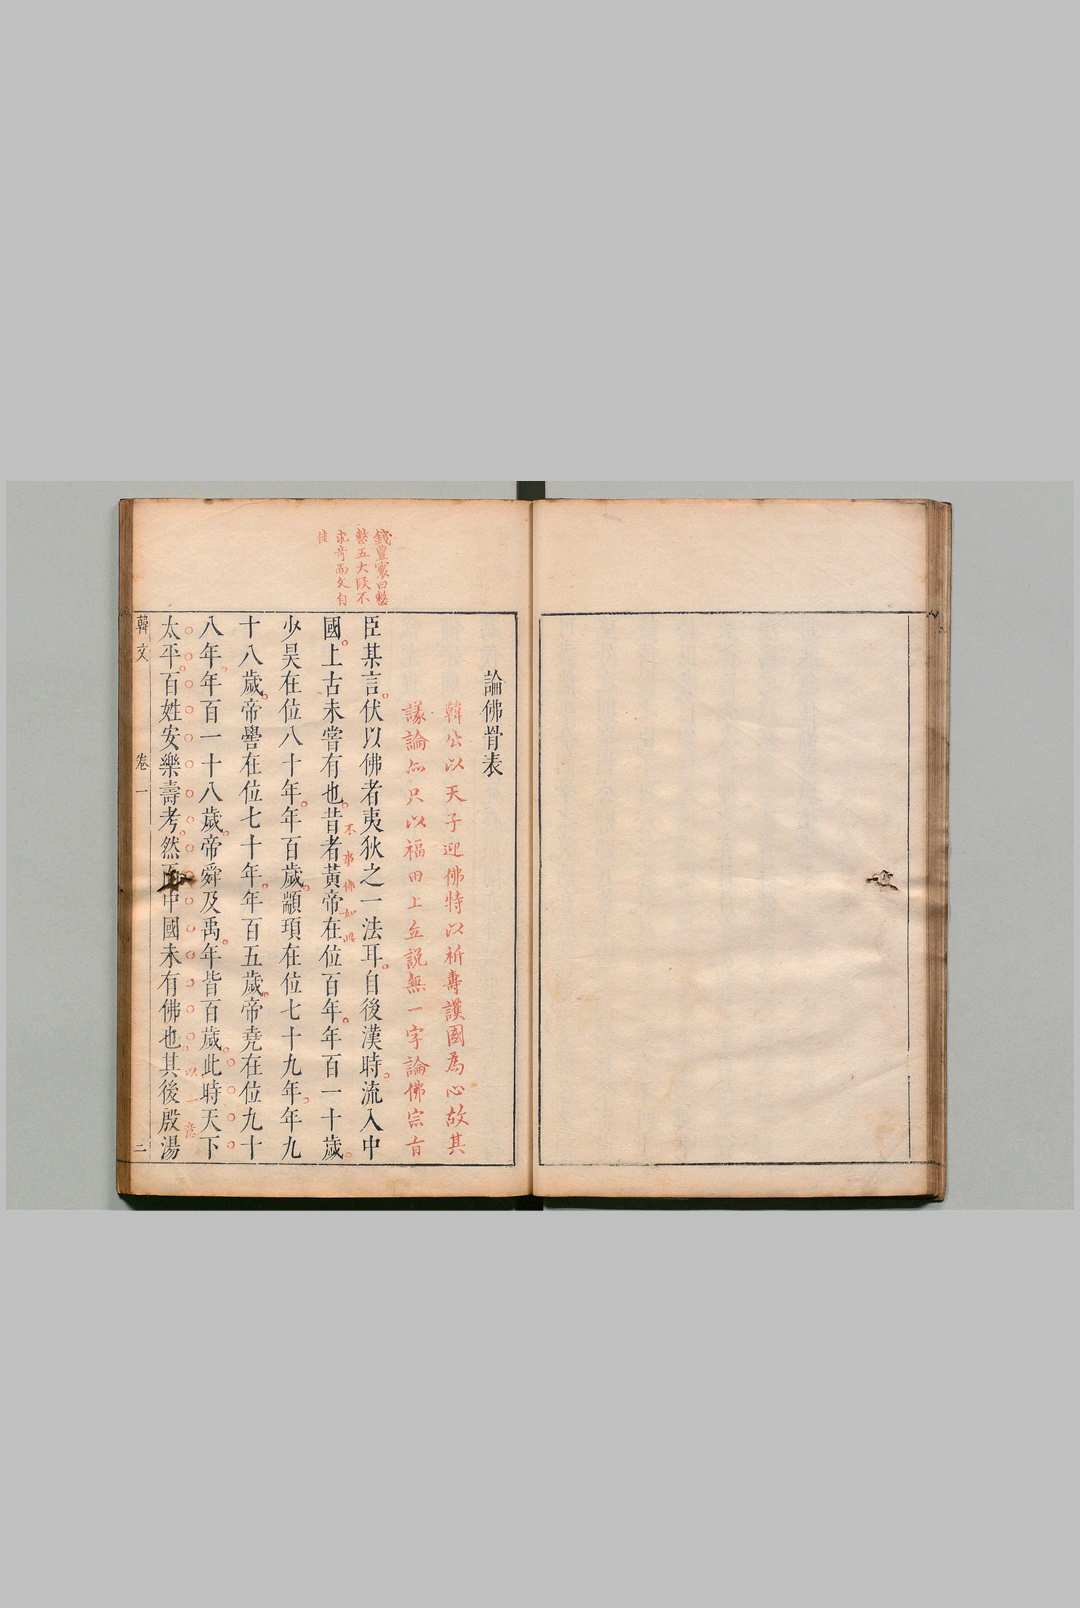 論佛骨表
韓公以天子迎佛特以祈壽護國為心故其
議論亦只以福田上立說無一字論佛宗旨
錢豐寰曰整
整五大段不
求奇而文自
佳
臣某言伏以佛者夷狄之一法耳自後漢時流入中
國上古未嘗有也昔者黃帝在位百年年百一十歲
少昊在位八十年年百歲顓頊在位七十九年年九
十八歲帝嚳在位七十年年百五歲帝堯在位九十
八年年百一十八歲帝舜及禹年皆百歲此時天下
太平百姓安樂壽考然而中國未有佛也其後殷湯
韓文
卷一
二